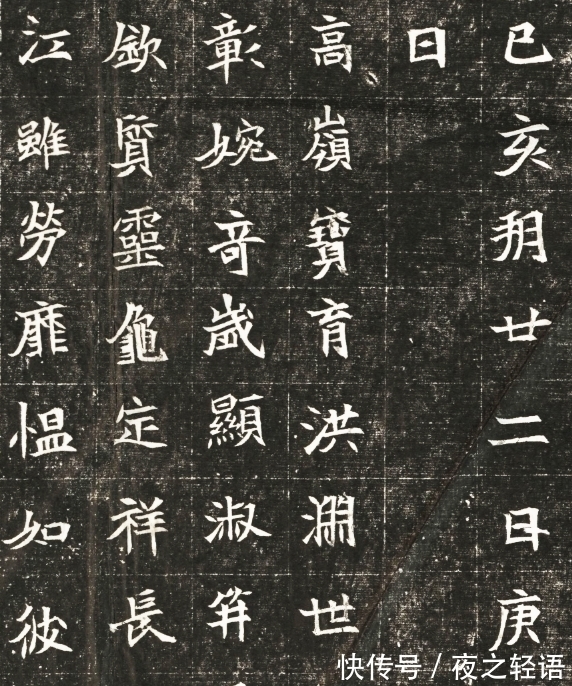 巳亥朔廿二日庚
曰
高嶺寶育洪淵世
彰婉奇歲顯淑笄
欽質靈龜定祥長
江雖勞靡愠如彼
快传号 / 夜之轻语